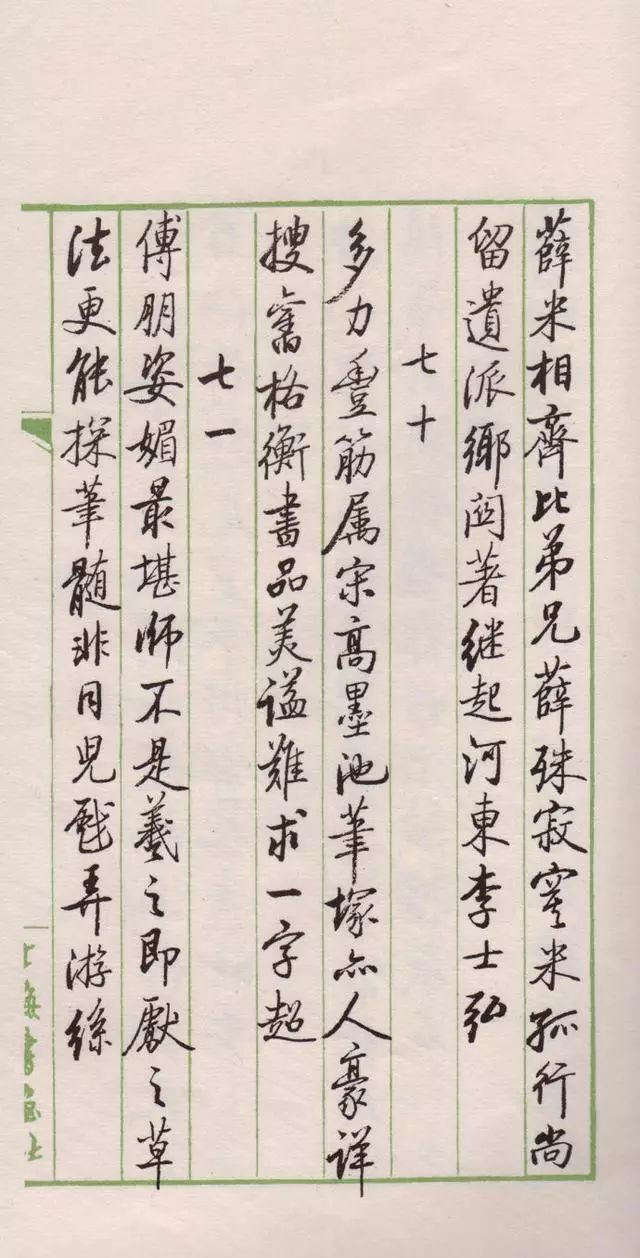 薛米相齊比弟兄薛殊寂寞米孤行尚
留遺派鄉閭著继起河東李士弘
七十
多力豊筋属宋高墨池筆塚亦人豪详
搜舊格衡書品美谥難求一字超
七一
傅朋姿媚最堪師不是羲之即獻之草
法更能探筆髓非同兒戲弄游絲
上海書画社